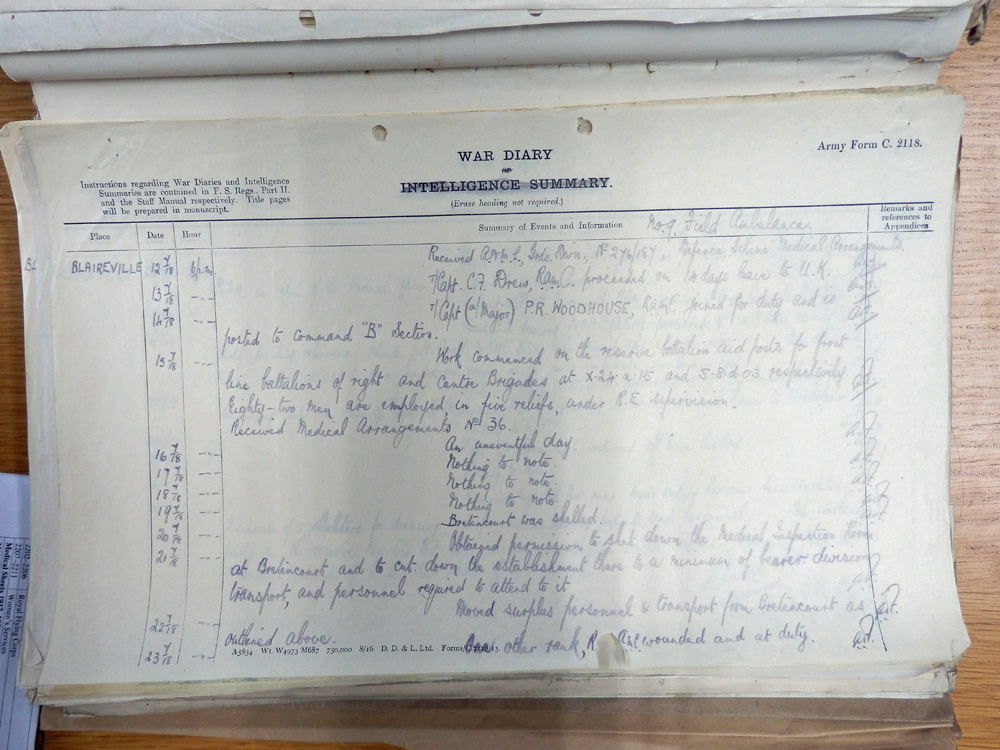 WAR DIARY
or
INTELLIGENCE SUMMARY.
(Erase heading not required.)
Army Form C. 2118.
Instructions regarding War Diaries and Intelligence
Summaries are contained in F. S. Regs., Part II.
and the Staff Manual respectively. Title pages
will be prepared in manuscript.
No. 9 Field Ambulance.
Place Date Hour Summary of Events and Information Remarks and references to Appendices
BLAIREVILLE 12/7/18 6 p.m. Received A.D.M.S., Grds. Divn., Nº 276/187, Defence Scheme Medical Arrangements.
13/7/18 --- T/Capt. C.F. Drew, R.A.M.C. proceeded on 14 days leave to U.K.
14/7/18 --- T/Capt (a/Major) P.R. WOODHOUSE, RAMC joined for duty and is
posted to command "B" Section.
15/7/18 --- Work commenced on the reserve battalion aid posts for front
line battalions of right and centre Brigades at X.24.a.15 and S.8.d.03 respectively.
Eighty-two men are employed in five reliefs, under R.E supervision.
Received Medical Arrangements Nº 36.
16/7/18 --- An uneventful day.
17/7/18 --- Nothing to note.
18/7/18 --- Nothing to note.
19/7/18 --- Nothing to note.
20/7/18 --- Bretencourt was shelled.
21/7/18 --- Obtained permission to shut down the Medical Inspection Room
at Bretencourt and to cut down the establishment there to a minimum of bearer division
transport, and personnel required to attend to it
22/7/18 --- Moved surplus personnel & transport from Bretencourt as
outlined above.
23/7/18 --- One other rank, R.A.M.C wounded and at duty.
A5834 Wt. W4973 M687 750,000 8/16 D. D. & L. Ltd. Forms/C.2118/13.
2207-2211
Royal Flying Corps
Women's Services
Medical Sheets